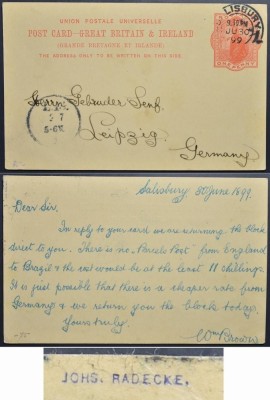 UNION POSTALE UNIVERSELLE
POST CARD-GREAT BRITAIN & IRELAND
(GRANDE BRETAGNE ET IRLANDE)
THE ADDRESS ONLY TO BE WRITTEN ON THIS SIDE.
LISBURY
JU 30
99
ONE PENNY
Herrn Gebruder Senf.
Leipzig.
Germany
5 7
Salisbury 30 June 1899.
Dear Sir.
In reply to your card we are returning the block
sent to you. There is no "Parcels Post" from England
to Brazil & the cost would be at the least 11 shillings.
It is just possible that there is a cheaper rate from
Germany & we return you the block today.
Yours truly.
Wm Brown
JOHS. RADECKE.